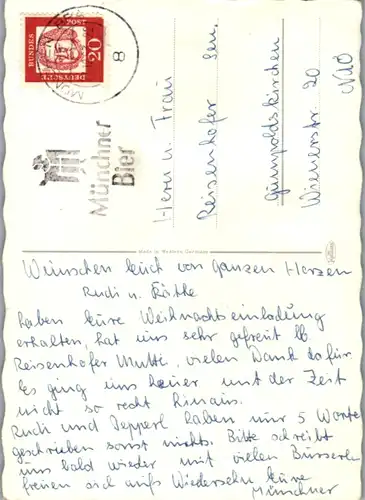 DEUTSCHE
BUNDES
POST
20
8
Münchner
Bier
Herrn u. Frau
Reisenhofer sen.
Gumpoldskirchen
Wienerstr. 20
NÖ
Made in Western Germany
Wünschen Euch von ganzen Herzen
Rudi u. Käthe
haben Eure Weihnachtseinladung
erhalten, hat uns sehr gefreut lb.
Reisenhofer Mutti, vielen Dank dafür
Es ging uns heuer mit der Zeit
nicht so recht hinaus.
Rudi und Pepperl haben nur 5 Worte
geschrieben sonst nichts. Bitte schreibt
uns bald wieder mit vielen Busserln
freuen sich aufs Wiedersehn Eure
Münchner